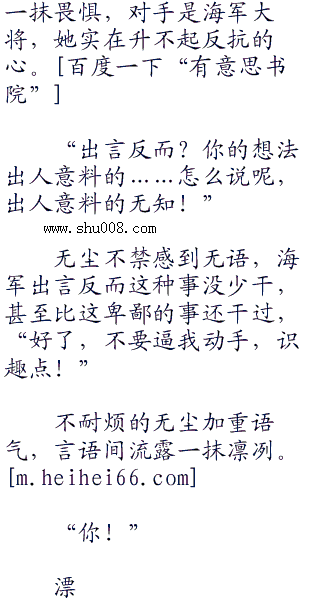 一抹畏惧，对手是海军大
将，她实在升不起反抗的
心。[百度一下“有意思书
院”]
“出言反而？你的想法
出人意料的……怎么说呢，
出人意料的无知！”
www.shu008.com
无尘不禁感到无语，海
军出言反而这种事没少干，
甚至比这卑鄙的事还干过，
“好了，不要逼我动手，识
趣点！”
不耐烦的无尘加重语
气，言语间流露一抹凛冽。
[m.heihei66.com]
“你！”
漂